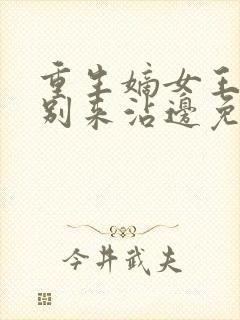 重生嫡女王
别来沾边免
今井武夫